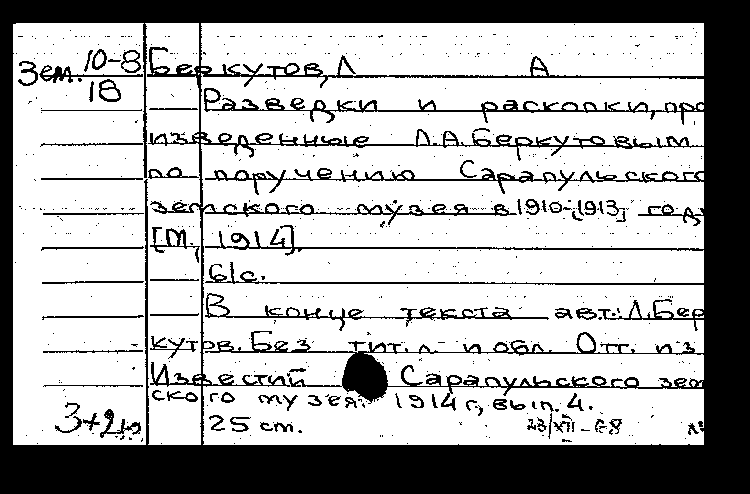 Зем. 10-8 Беркутов, Л А
18 Разведки и раскопки, про
изведенные Л.А.Беркутовым
по поручению Сарапульского
земского музея в 1910-[1913] году
[М., 1914].
61с.
В конце текста авт.: Л.Бер
кутов. Без тит.л. и обл. Отт. из
Известий Сарапульского зем
ского музея. 1914 г, вып. 4.
25 cm. 23/XII-68